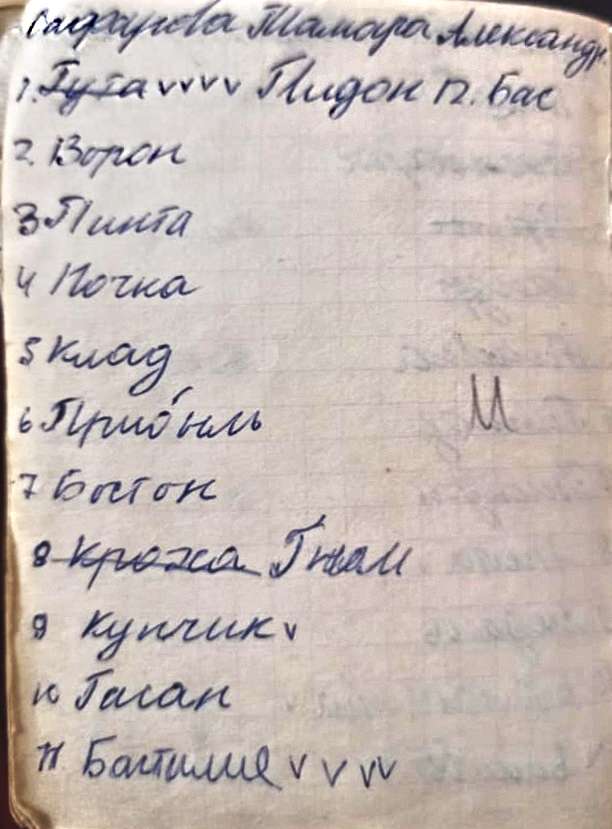 Тамара Александр
1. Гута vvvv Пидон п. Бас
2. Ворон
3 Пинта
4 Ночка
5 Клад
6 Прибыль
М
7 Бостон
8 Кража Гном
9 Купчик v
10 Гасан
11 Бастилия v v vv